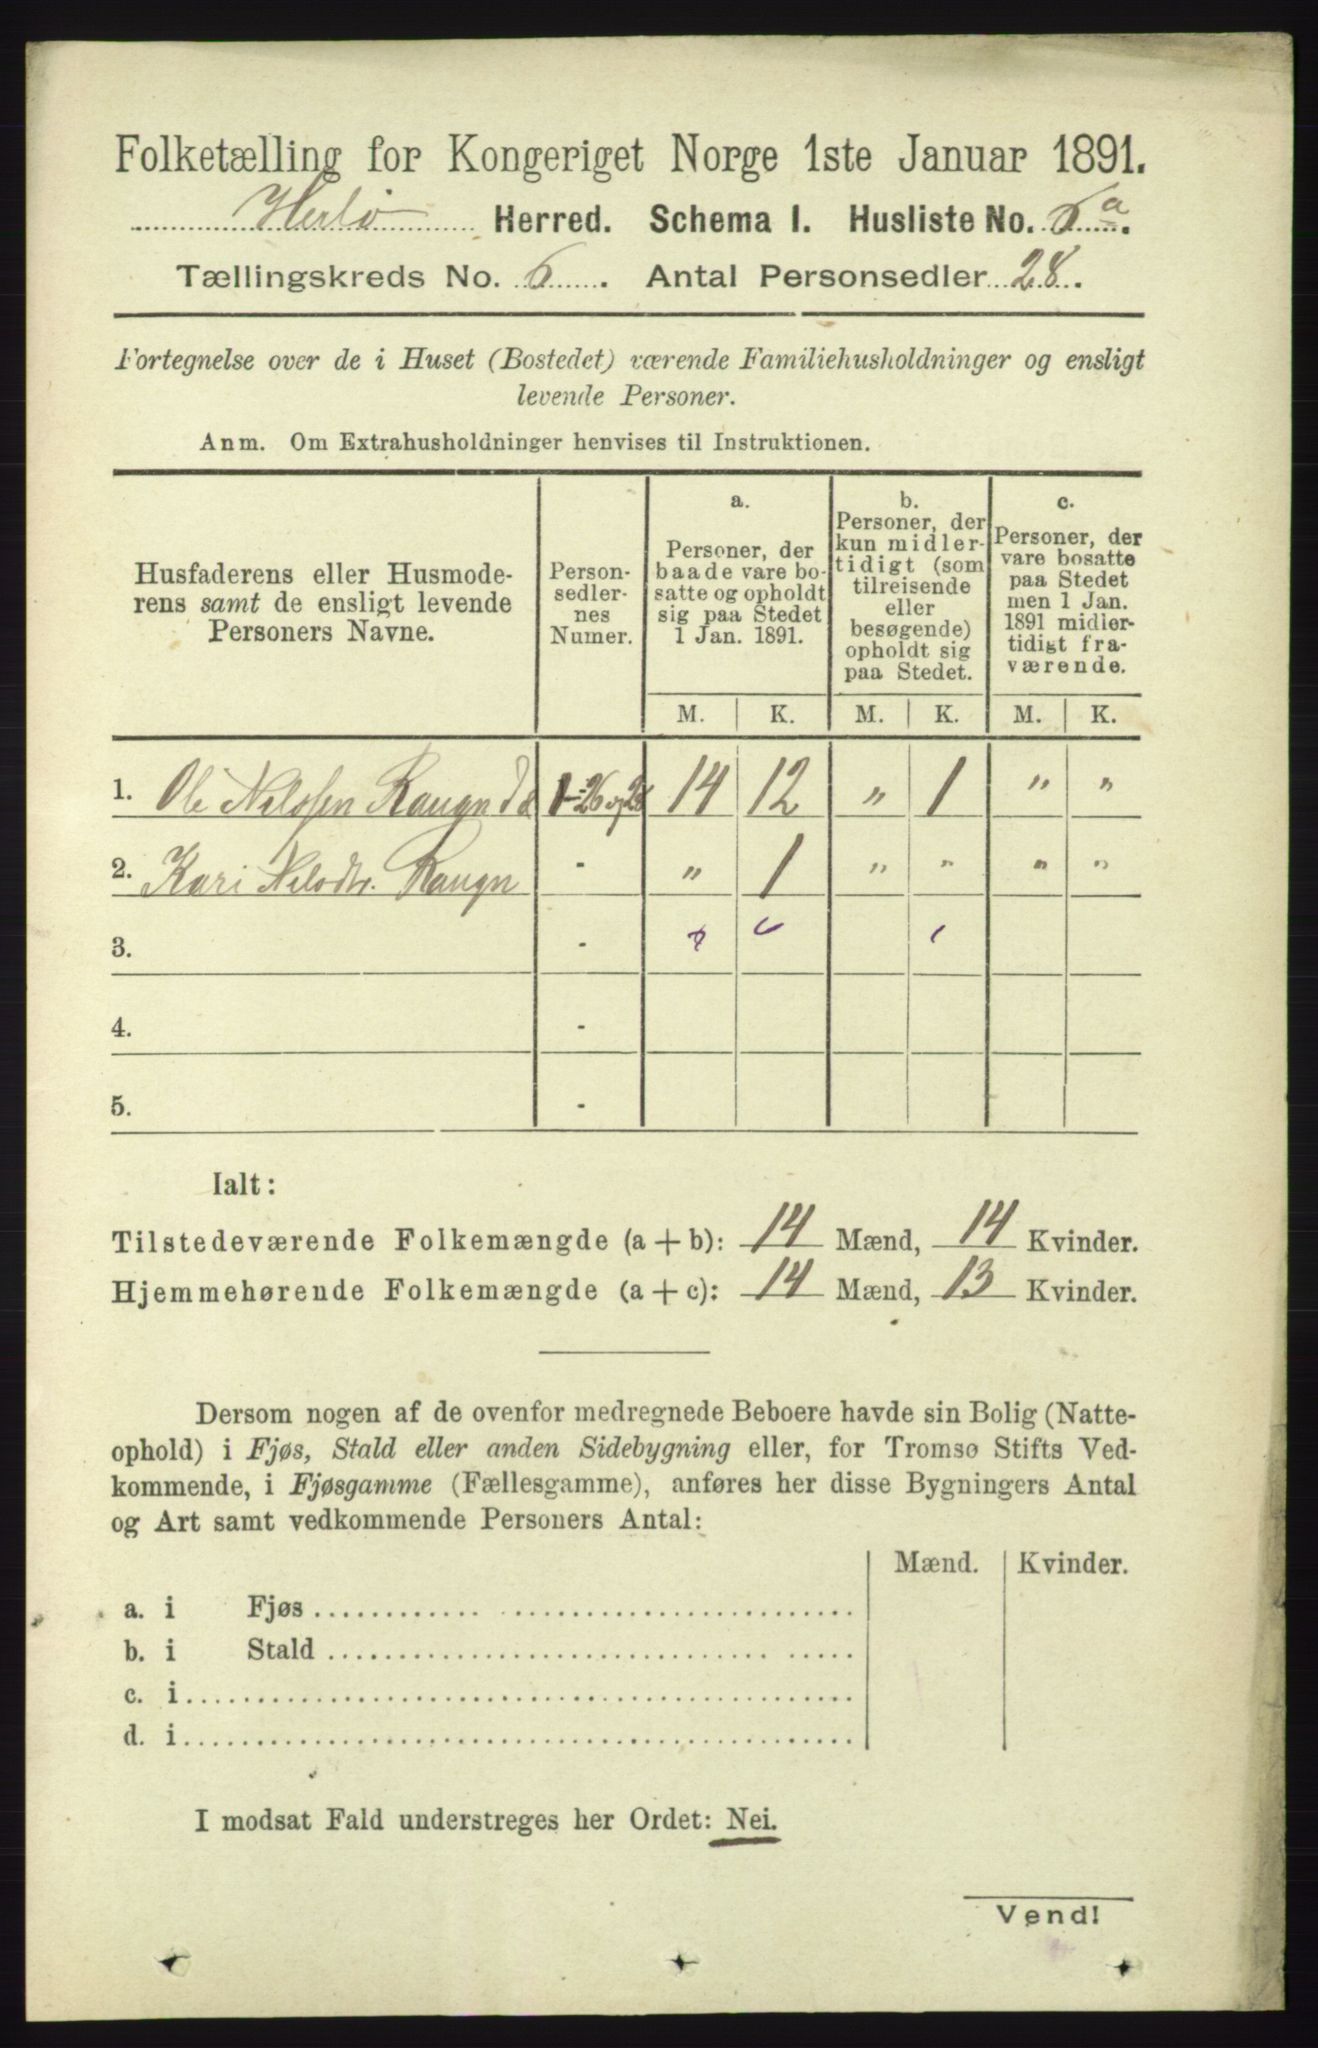 Folketælling for Kongeriget Norge 1ste Januar 1891.
Herlö Herred. Schema I. Husliste No. 6 a.
Tællingskreds No. 6. Antal Personsedler 28.
Fortegnelse over de i Huset (Bostedet) værende Familiehusholdninger og ensligt
levende Personer.
Anm. Om Extrahusholdninger henvises til Instruktionen.
Husfaderens eller Husmode-
rens samt de ensligt levende
Personers Navne.
Person-
sedler-
nes
Numer.
a.
Personer, der
baade vare bo-
satte og opholdt
sig paa Stedet
1 Jan. 1891.
b.
Personer, der
kun midler-
tidigt (som
tilreisende
eller
besøgende)
opholdt sig
paa Stedet.
c.
Personer, der
vare bosatte
paa Stedet
men 1 Jan.
1891 midler-
tidigt fra-
værende.
M. K. M. K. M. K.
1. Ole Nelssen Raugn 1-26 og 28 14 12 " 1 " "
2. Kari Nelsdtr. Raugn - " 1 " " " "
3. -
4. -
5. -
Ialt:
Tilstedeværende Folkemængde (a + b): 14 Mænd, 14 Kvinder.
Hjemmehørende Folkemængde (a + c): 14 Mænd, 13 Kvinder.
Dersom nogen af de ovenfor medregnede Beboere havde sin Bolig (Natte-
ophold) i Fjøs, Stald eller anden Sidebygning eller, for Tromsø Stifts Ved-
kommende, i Fjøsgamme (Fællesgamme), anføres her disse Bygningers Antal
og Art samt vedkommende Personers Antal:
Mænd. Kvinder.
a. i Fjøs
b. i Stald
c. i
d. i
I modsat Fald understreges her Ordet: Nei.
Vend!